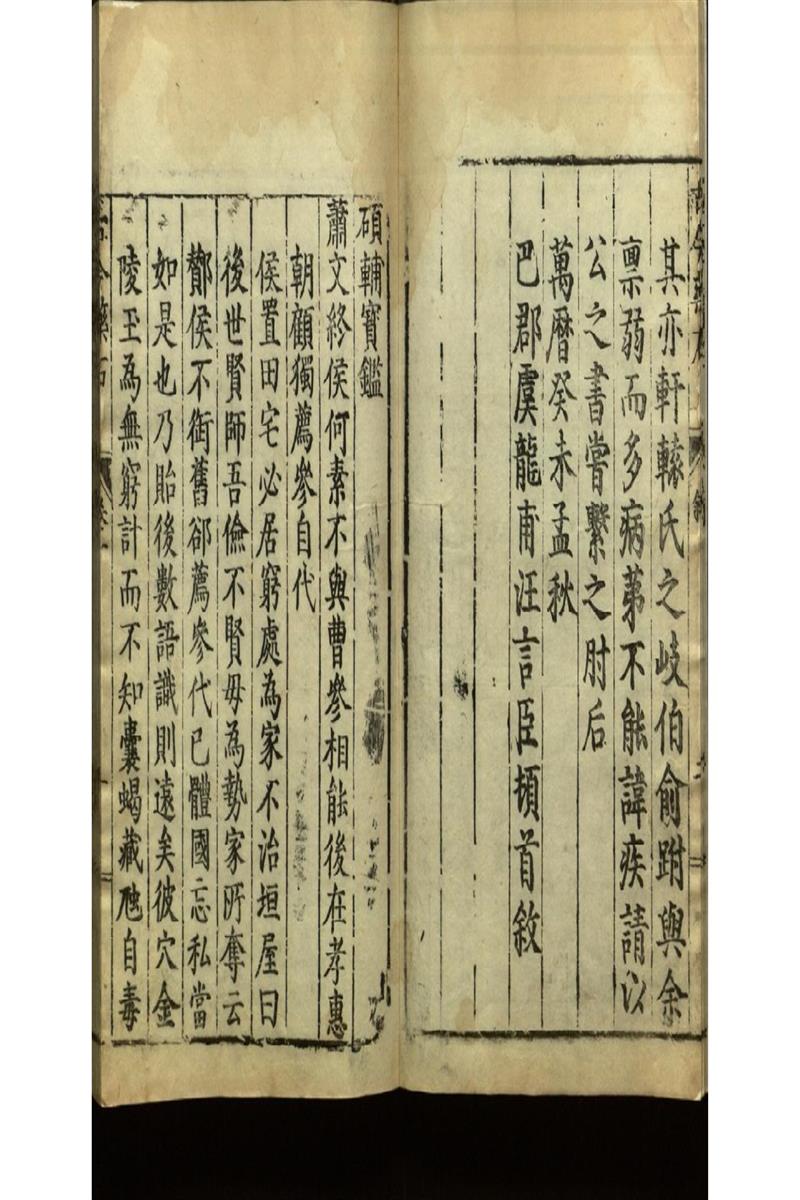 其亦軒轅氏之岐伯俞跗與余
禀弱而多病苐不能諱疾請以
公之書嘗繫之肘后
萬曆癸未孟秋
巴郡虞龍甫汪言臣頓首敘
碩輔寶鑑
蕭文終侯何素不與曹參相能後在孝惠
朝顧獨薦參自代
侯置田宅必居窮處為家不治垣屋曰
後世賢師吾儉不賢毋為勢家所奪云
酇侯不銜舊郤薦參代已體國忘私當
如是也乃貽後數語識則遠矣彼穴金
陵玉為無窮計而不知囊蝎藏虺自毒
古今藥石
卷一